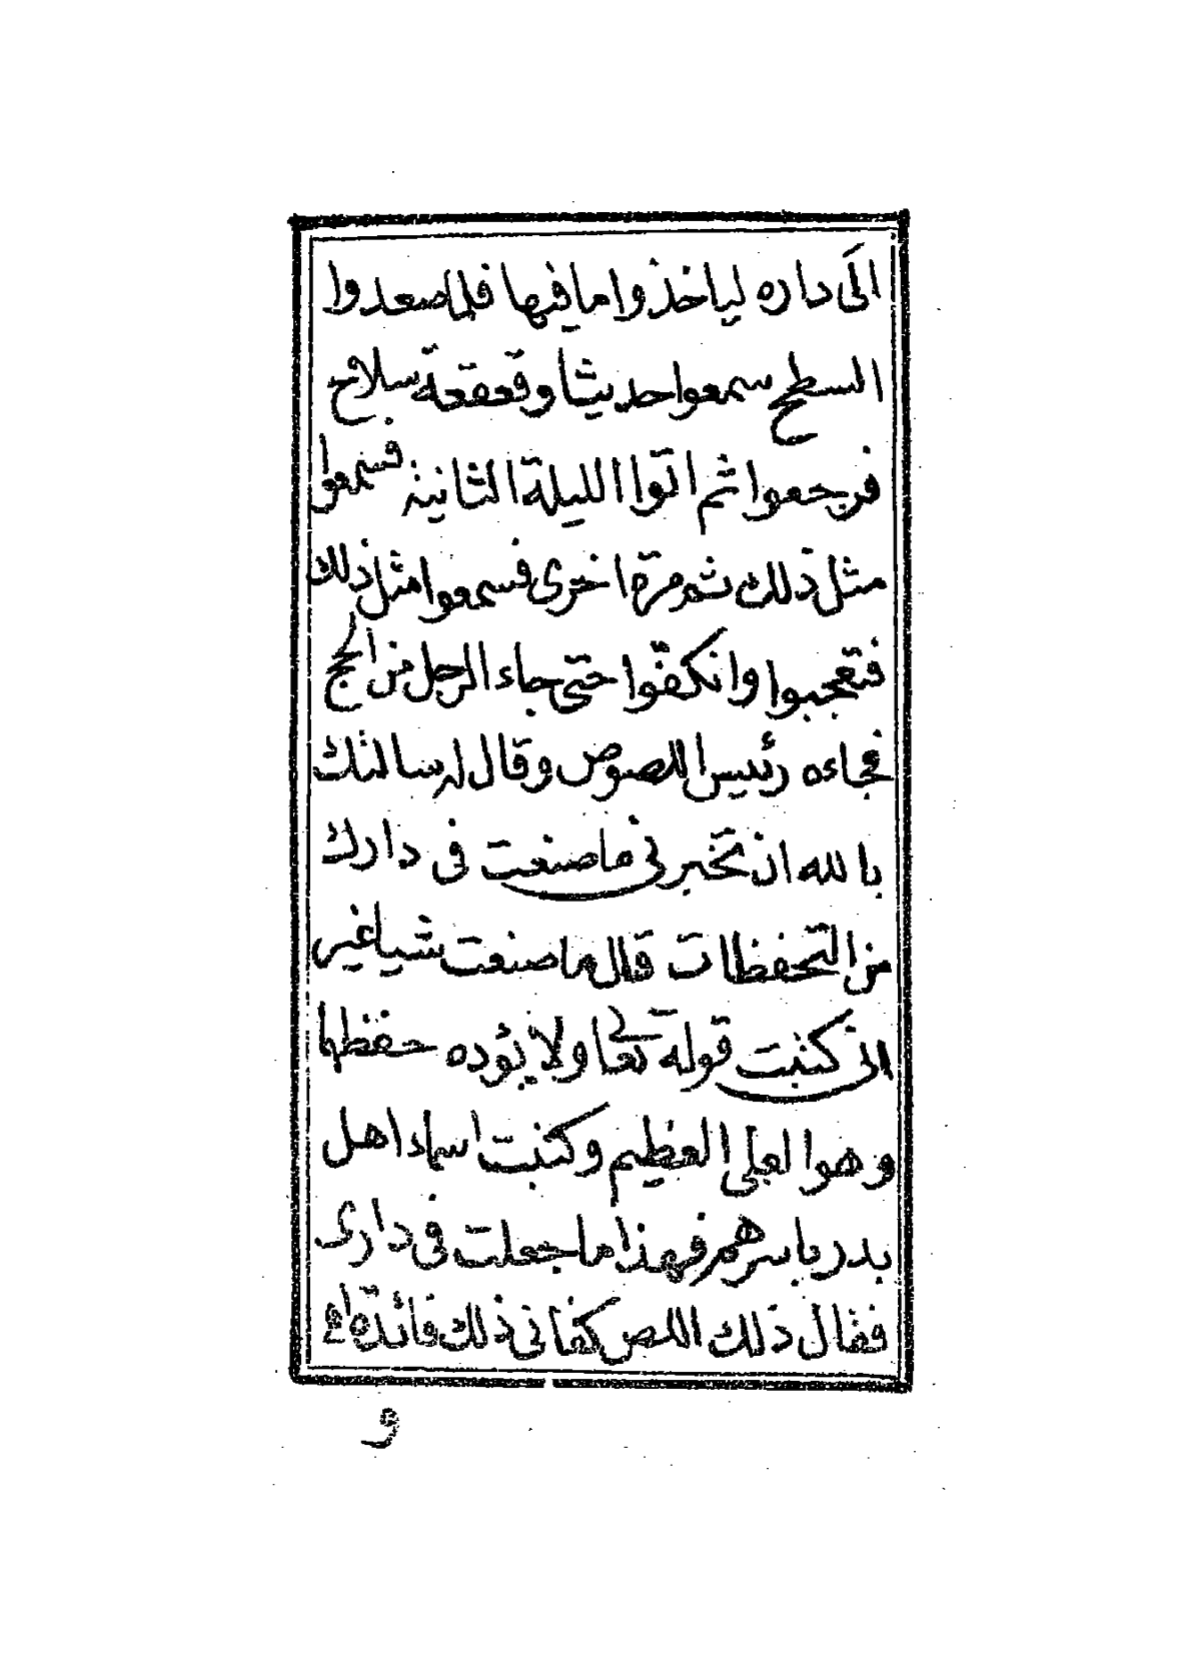 الى داره لياخذوا ما فيها فلما صعدوا
السطح سمعوا حديثا وقعقعة سلاح
فرجعوا ثم اتوا الليلة الثانية فسمعوا
مثل ذلك ثم مرة اخرى فسمعوا مثل ذلك
فتعجبوا وانكفّوا حتى جاء الرجل من الحج
فجاءه رئيس اللصوص وقال له سالتك
بالله ان تخبرنى ما صنعت فى دارك
من التحفظات قال ما صنعت شيا غير
انى كتبت قوله تعالى ولا يؤده حفظهما
وهو العلى العظيم وكتبت اسماء اهل
بدر باسرهم فهذا ما جعلت فى دارى
فقال ذلك اللص كفانى ذلك فائدة
و